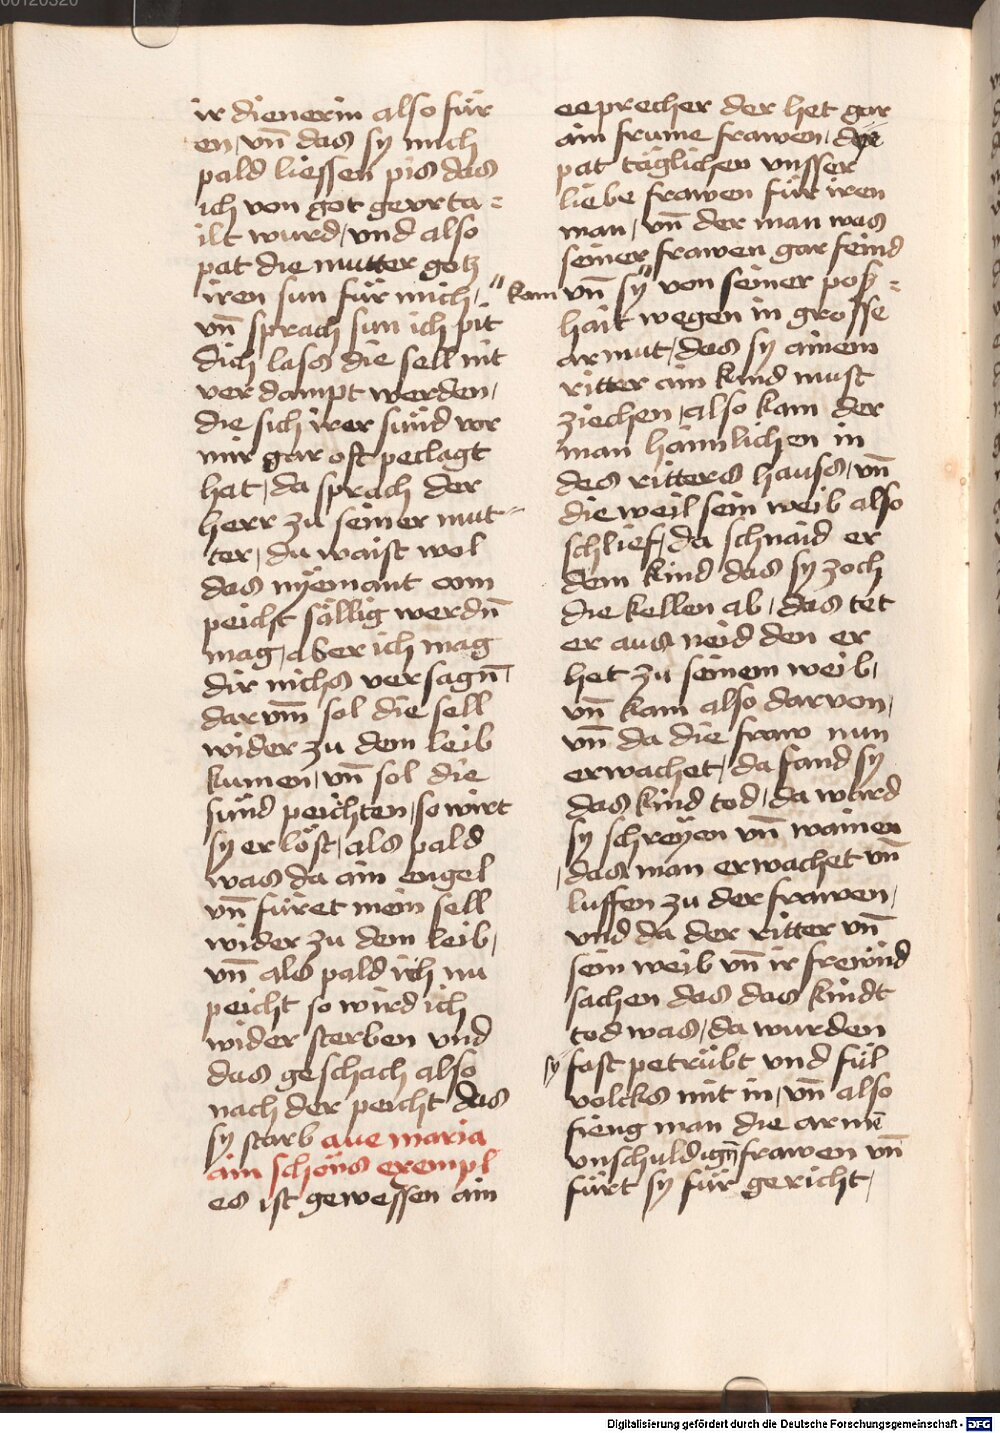 ir dienerin also für
en, vn̄ das sy mich
pald liessen pis das
ich von got gevrta⸗
ilt wurd, vnd also
pat die mutter gotz
iren sun für mich,
vn̄ sprach sun ich pit
dich lass die sell nit
verdampt werden,
die sich irer sünd vor
mir gar oft peclagt
hat, da sprach der
herr zu seiner mut⸗
ter, du waist wol
das nÿemant on
peicht sällig werdn̄
mag, aber ich mag
dir nichs versagn̄,
darvm̄ sol die sell
wider zu dem leib
kumen, vn̄ sol die
sünd peichten, so wirt
sy erlöst, als pald
was da ain engel
vn̄ füret mein sell
wider zu dem leib,
vn̄ als pald ich nu
peicht so wird ich
wider sterben vnd
das geschach also
nach der peicht das
sy starb aue maria
ain schöns exempl
es ist gewessen ain
eeprecher der het gar
ain frume frawen, die
pat täglichen vnsser
liebe frawen für iren
man, vn̄ der man was
seiner frawen gar feind
kam vn̄ sy" von seiner posz⸗
hait wegen in grosse
armut, das sy ainem
ritter ain kind must
ziechen, also kam der
man haimlichen in
des ritters hauss, vn̄
die weil sein weib also
schlief, da schnaid er
dem kind das sy zoch
die kellen ab, das tet
er aus neid den er
het zu seinem weib,
vn̄ kam also darvon,
vn̄ da die fraw nun
erwachet, da fand sy
das kind tod, da ward
sy schreÿen vn̄ wainen
das man erwachet vn̄
luffen zu der frawen,
vnd da der ritter vn̄
sein weib vn̄ ir freünd
sachen das das kindt
tod was, da wurden
sy fast petrübt vnd fül
volcks mit in, vn̄ also
fieng man die armē
vnschuldign̄ frawen vn̄
fürt sy für gericht,
Digitalisierung gefördert durch die Deutsche Forschungsgemeinschaft - DFG